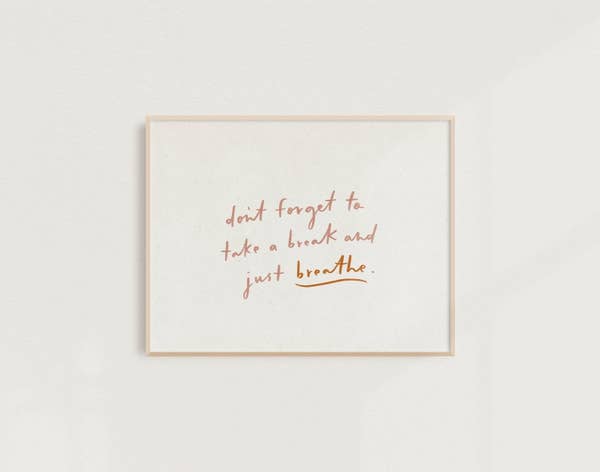 don't forget to
take a break and
just breathe.